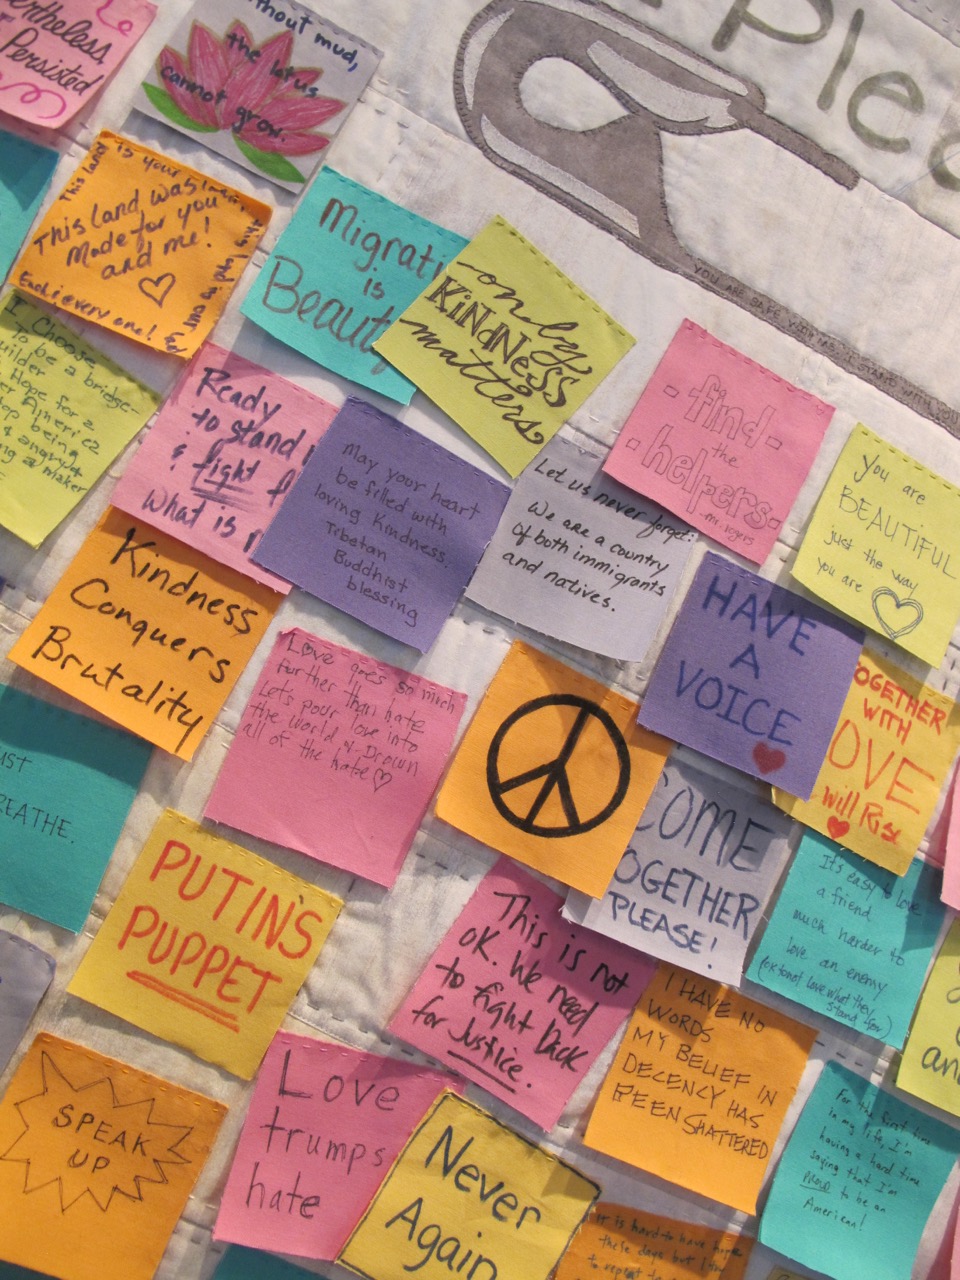 Persisted
without mud,
the lotus
cannot grow.
Ple
This land
is your
This land was
Made for you
and me!
Each & every one!
Migrati
is
Beaut
only
KiNdNESS
matters
YOU ARE SAFE WITH ME. I STAND WITH YOU
I Choose
to be a bridge-
Hope for a
being
Ready
to stand
& fight f
What is r
May your heart
be filled with
loving kindness.
Tibetan
Buddhist
blessing
Let us never forget:
We are a country
of both immigrants
and natives.
-find-
the
-helpers-
-mr. rogers
You are
BEAUTIFUL
just the way
you are
Kindness
Conquers
Brutality
Love goes so much
further than hate
Let's pour love into
the world & Drown
all of the hate
HAVE
A
VOICE
OGETHER
WITH
OVE
will Rise
UST
REATHE.
COME
OGETHER
PLEASE!
It's easy to love
a friend
much harder to
love an enemy
(OK to not love what they
stand for)
PUTIN'S
PUPPET
This is not
OK. We need
to fight back
for Justice.
I HAVE NO
WORDS
MY BELIEF IN
DECENCY HAS
BEEN SHATTERED
an
SPEAK
UP
Love
trumps
hate
Never
Again
For the first time
in my life, I'm
having a hard time
saying that I'm
PROUD to be an
American!
It is hard to have hope
these days but I
to repeat